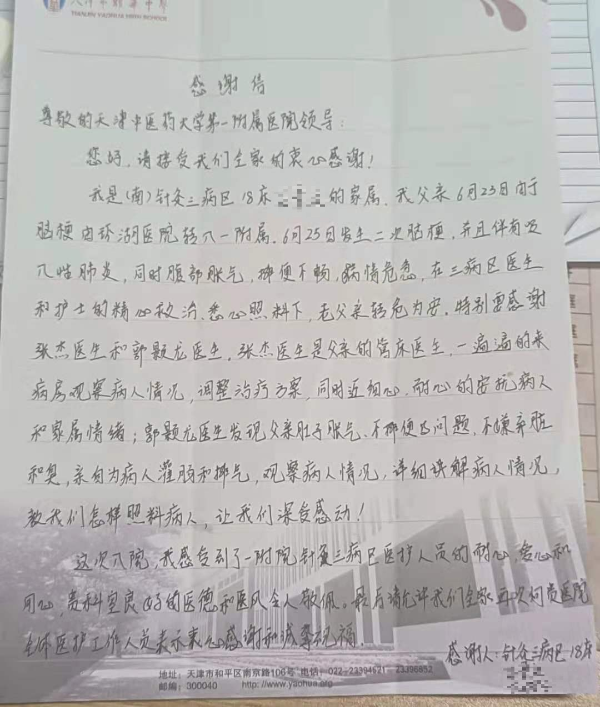 天津市耀华中学
TIANJIN YAOHUA HIGH SCHOOL
感谢信
尊敬的天津中医药大学第一附属医院领导:
您好,请接受我们全家的衷心感谢!
我是(南)针灸三病区18床的家属,我父亲6月23日由于
脑梗由环湖医院转入一附属,6月25日发生二次脑梗,并且伴有吸
入性肺炎,同时腹部胀气,排便不畅,病情危急,在三病区医生
和护士的精心救治、悉心照料下,老父亲转危为安,特别要感谢
张杰医生和郭颢龙医生,张杰医生是父亲的管床医生,一遍遍的来
病房观察病人情况,调整治疗方案,同时还细心、耐心的安抚病人
和家属情绪;郭颢龙医生发现父亲肚子胀气、不排便的问题,不嫌弃脏
和臭,亲自为病人灌肠和排气,观察病人情况,详细讲解病人情况,
教我们怎样照料病人,让我们深受感动!
这次入院,我感受到了一附院针灸三病区医护人员的耐心、爱心和
用心,贵科室良好的医德和医风令人敬佩。最后请允许我们全家再次向贵医院
全体医护工作人员表示衷心感谢和诚挚祝福.
感谢人:针灸三病区18床
地址:天津市和平区南京路106号 电话:022-23394621 23396852
邮编:300040 http://www.yaohua.org